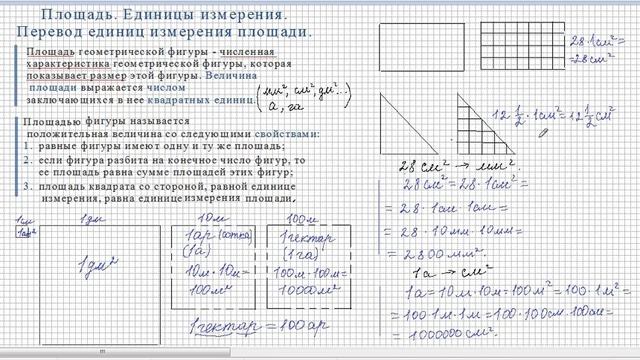 Площадь. Единицы измерения.
Перевод единиц измерения площади.
Площадь геометрической фигуры - численная
характеристика геометрической фигуры, которая
показывает размер этой фигуры. Величина
площади выражается числом
заключающихся в нее квадратных единиц.
(мм², см², дм²...)
а, га
Площадью фигуры называется
положительная величина со следующими свойствами:
1. равные фигуры имеют одну и ту же площадь;
2. если фигура разбита на конечное число фигур, то
ее площадь равна сумме площадей этих фигур;
3. площадь квадрата со стороной, равной единице
измерения, равна единице измерения площади.
1см
1см²
1дм
1дм²
10м
1ар (сотка)
(1а)
10м·10м=
100м²
100м
1гектар
(1га)
100м·100м=
10000м²
1гектар = 100ар
28·1см²=
=28см²
12 1/2 · 1см² = 12 1/2 см²
28см² → мм².
28см² = 28·1см² =
= 28·1см·1см =
= 28·10мм·10мм =
= 2800мм².
1а → см²
1а = 10м·10м = 100м² = 100·1м² =
= 100·1м·1м = 100·100см·100см =
= 1000000см².